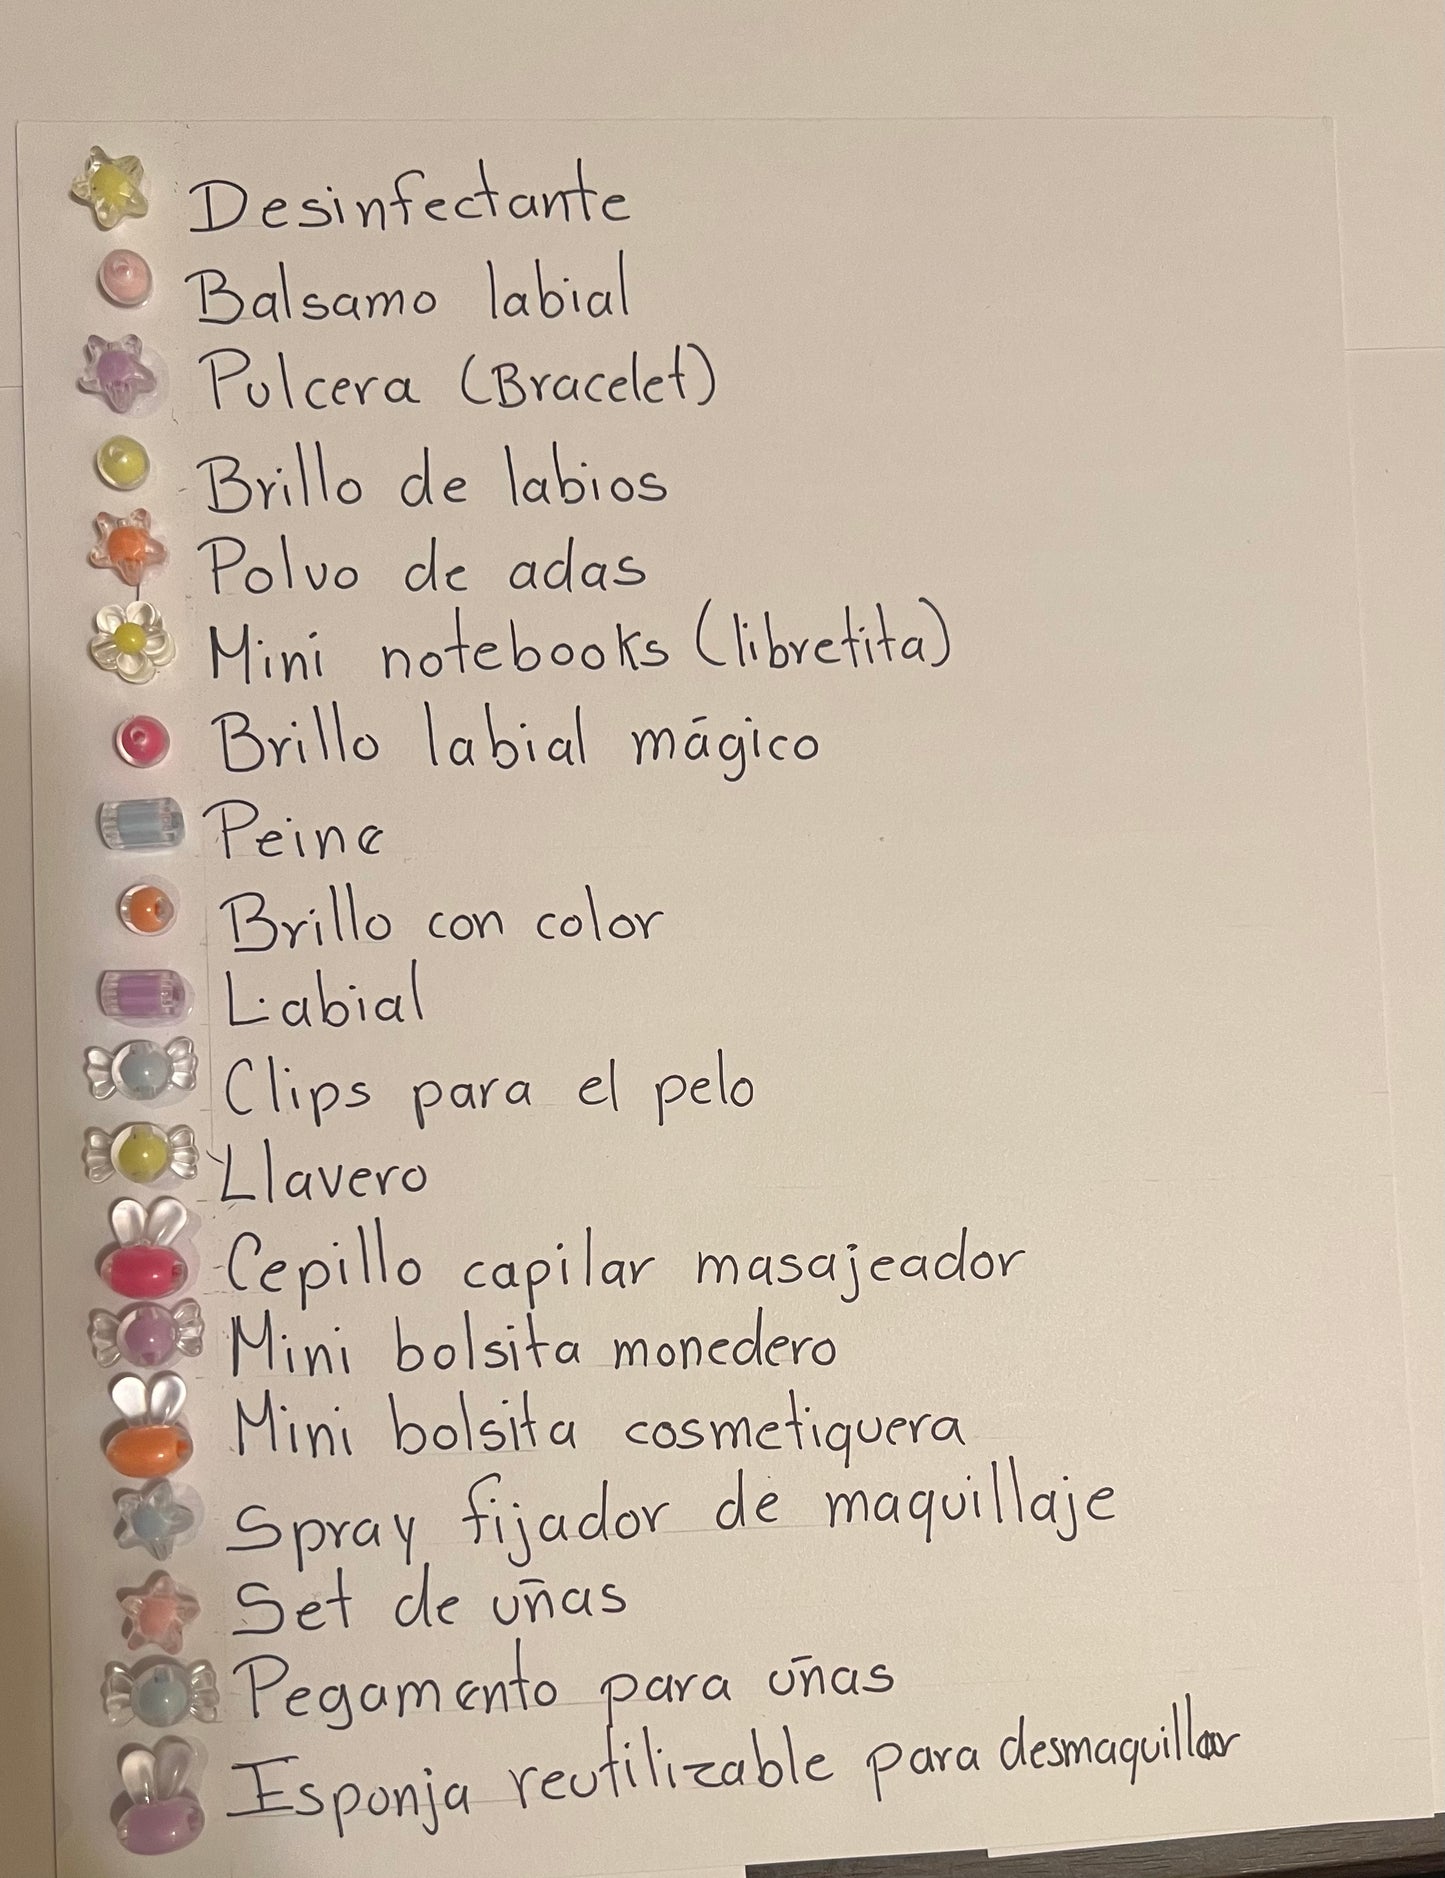 Desinfectante
Balsamo labial
Pulcera (Bracelet)
Brillo de labios
Polvo de adas
Mini notebooks (libretita)
Brillo labial mágico
Peine
Brillo con color
Labial
Clips para el pelo
Llavero
Cepillo capilar masajeador
Mini bolsita monedero
Mini bolsita cosmetiquera
Spray fijador de maquillaje
Set de uñas
Pegamento para uñas
Esponja reutilizable para desmaquillar